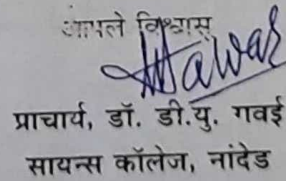 आपले विश्वासू
प्राचार्य, डॉ. डी.यु. गवई
सायन्स कॉलेज, नांदेड